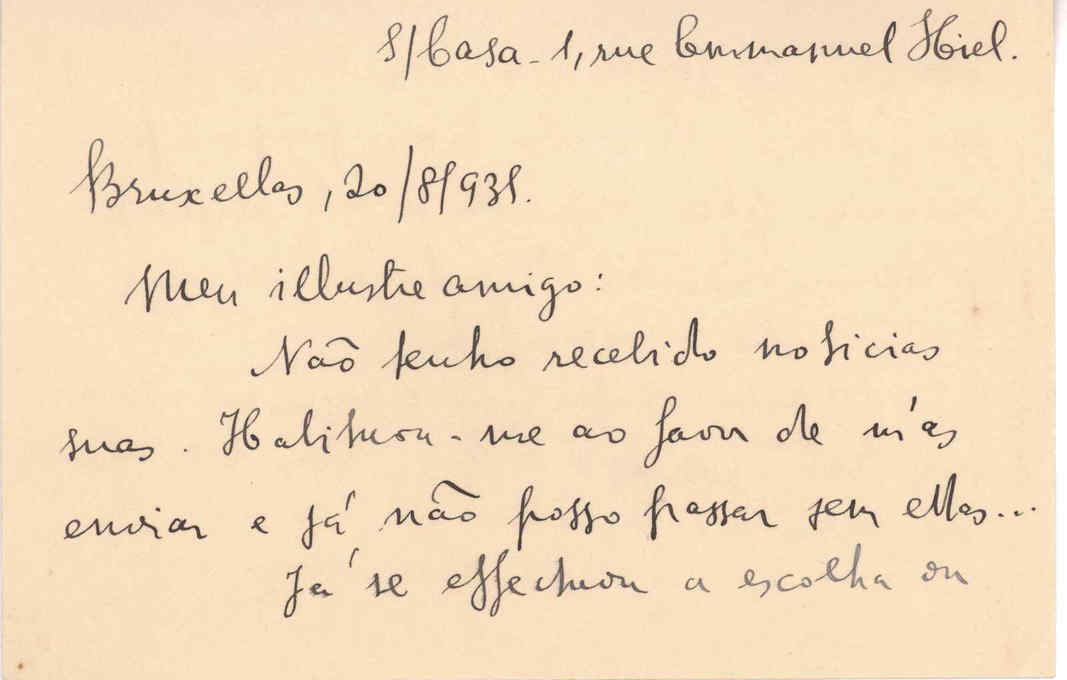 S/Casa - 1, rue Emmanuel Hiel.
Bruxellas, 20/8/931.
Meu illustre amigo:
Não tenho recebido noticias
suas. Habituou-me ao favor de m'as
enviar e já não posso passar sem ellas...
Já se effectuou a escolha ou